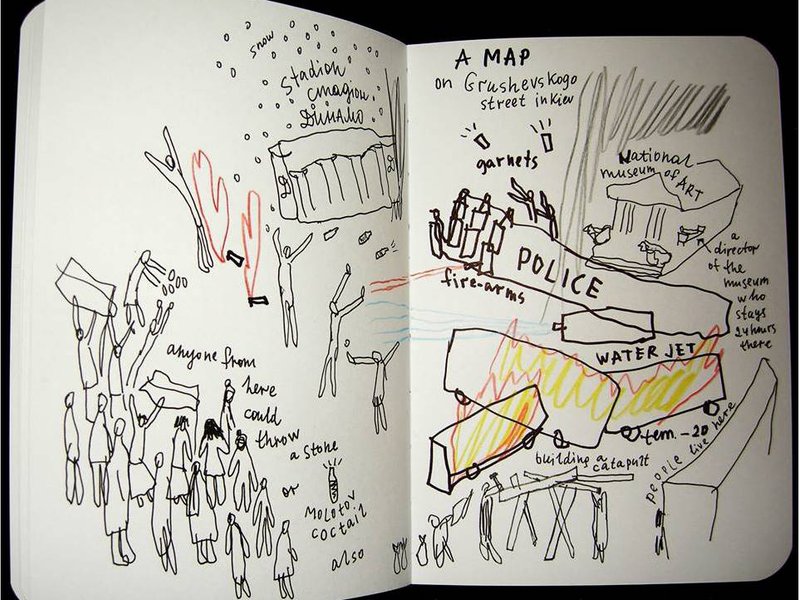 snow
Stadion
стадіон
ДИНАМО
anyone from
here
could
throw
a stone
or
MOLOTOV
COCTAIL
also
A MAP
on Grushevskogo
street in Kiev
garnets
National
museum of ART
a
director
of the
museum
who
stays
24 hours
there
POLICE
fire-arms
WATER JET
tem. -20
building a
catapult
people live here